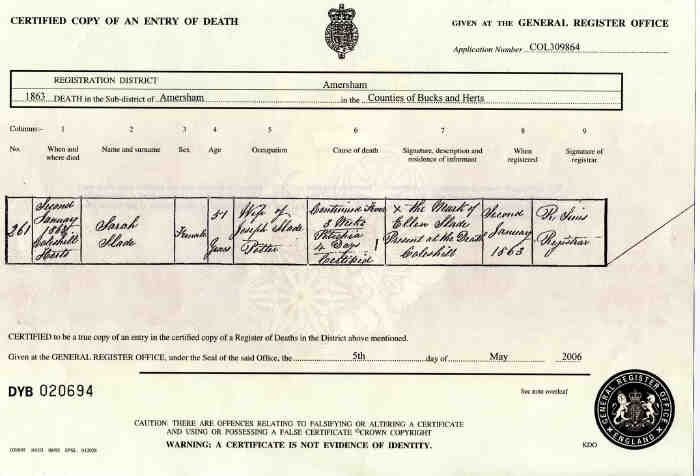 CERTIFIED COPY OF AN ENTRY OF DEATH
GIVEN AT THE GENERAL REGISTER OFFICE
Application Number COL309864
REGISTRATION DISTRICT Amersham
1863 DEATH in the Sub-district of Amersham in the Counties of Bucks and Herts
Columns:- 1 2 3 4 5 6 7 8 9
No. When and where died Name and surname Sex Age Occupation Cause of death Signature, description and residence of informant When registered Signature of registrar
261
Second
January
1863
Coleshill
Herts
Sarah
Slade
Female
51
Years
Wife of
Joseph Slade
Potter
Continued Fever
3 Weeks
Petechia
4 Days
Certified
X The Mark of
Ellen Slade
Present at the Death
Coleshill
Second
January
1863
R. Sims
Registrar
CERTIFIED to be a true copy of an entry in the certified copy of a Register of Deaths in the District above mentioned.
Given at the GENERAL REGISTER OFFICE, under the Seal of the said Office, the 5th day of May 2006
DYB 020694
See note overleaf
CAUTION: THERE ARE OFFENCES RELATING TO FALSIFYING OR ALTERING A CERTIFICATE
AND USING OR POSSESSING A FALSE CERTIFICATE ©CROWN COPYRIGHT
WARNING: A CERTIFICATE IS NOT EVIDENCE OF IDENTITY.
GENERAL REGISTER OFFICE
ENGLAND
KDO